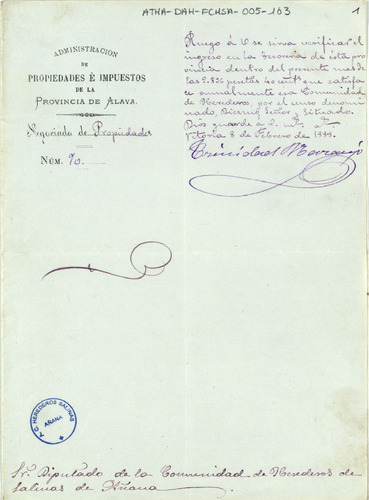 ATHA-DAH-FCHSA-005-163
1
ADMINISTRACION
DE
PROPIEDADES É IMPUESTOS
DE LA
PROVINCIA DE ALAVA.
Negociado de Propiedades
NÚM. 90.
Ruego á V se sirva verificar el
ingreso en la Tesoreria de ésta pro
vincia dentro del presente mes de
las 2.826 pesetas 40 cents que satisfa
ce anualmente esa Comunidad
de Herederos, por el censo denomi
nado, Diezmo, Señor y Situado.
Dios guarde á V. ms. as.
Vitoria 8 de Febrero de
Trinidad
A.C. HEREDEROS SALINAS
AÑANA
Sr. Diputado de la Comunidad de Herederos de
Salinas de Añana